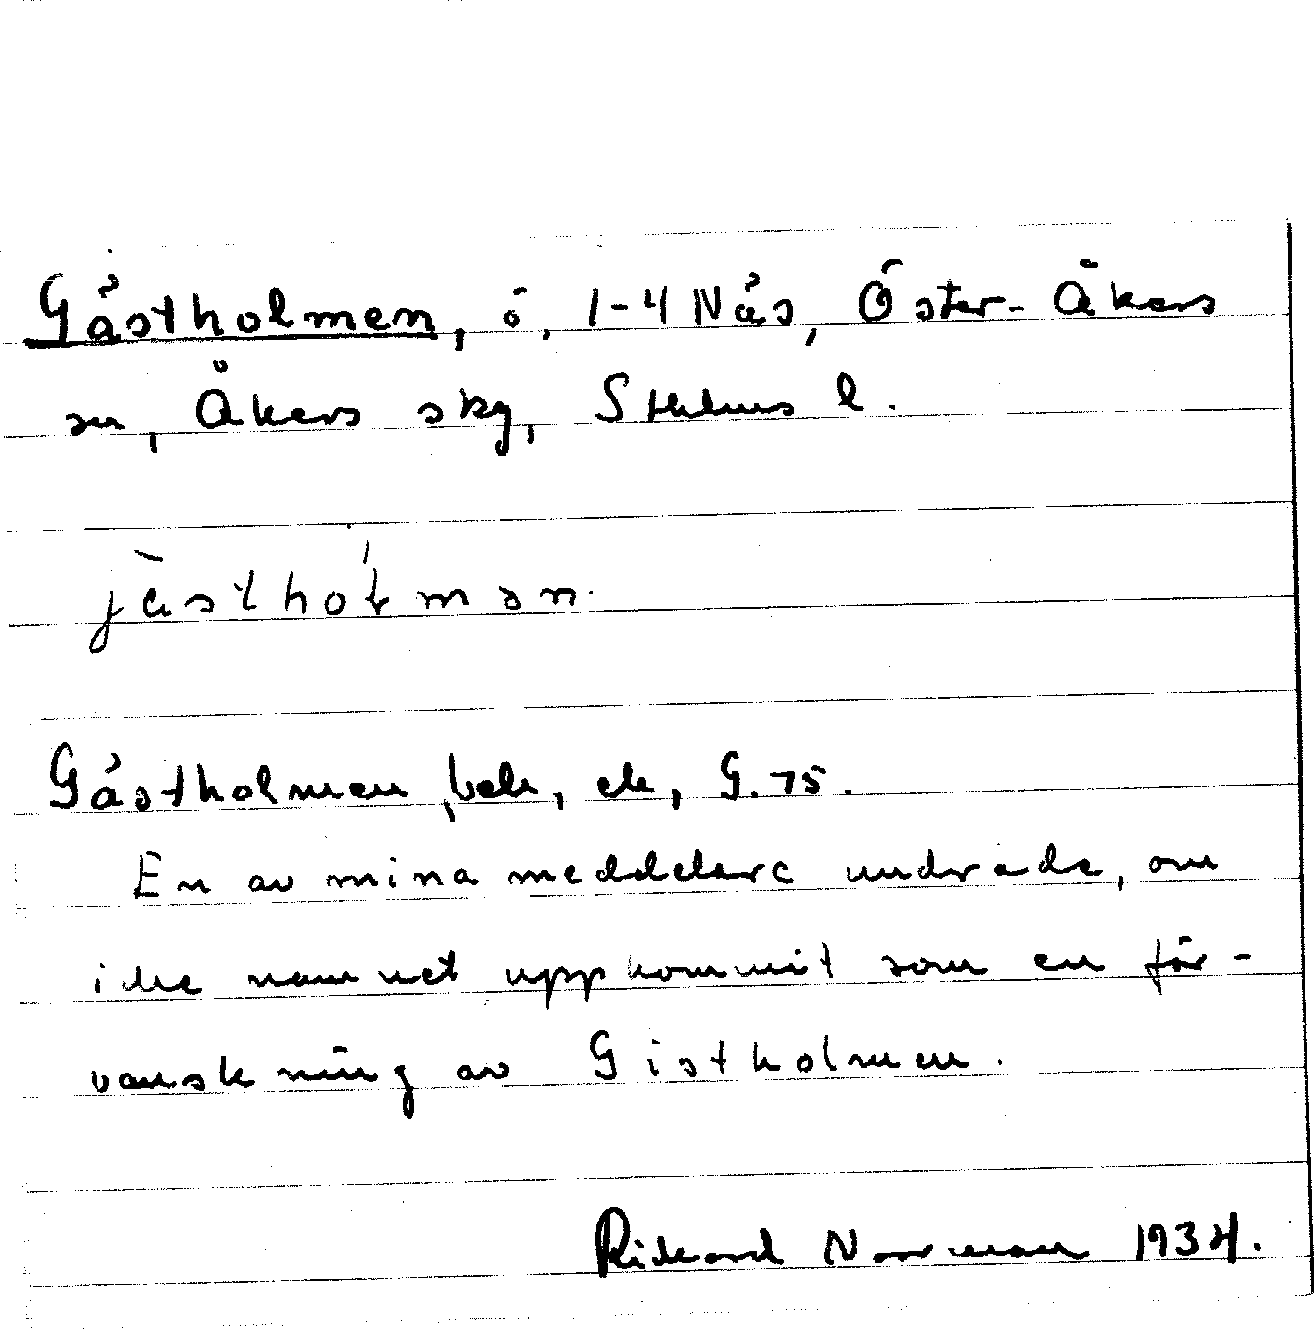 Gästholmen, ö, 1-4 Näs, Öster-Åkers
sn, Åkers skg, Sthlms l.
jàsthól̵mən.
Gästholmen, bek, ek, G. 75.
En av mina meddelare undrade, om
icke namnet uppkommit som en för-
vanskning av Gistholmen.
Rickard Norrman 1934.